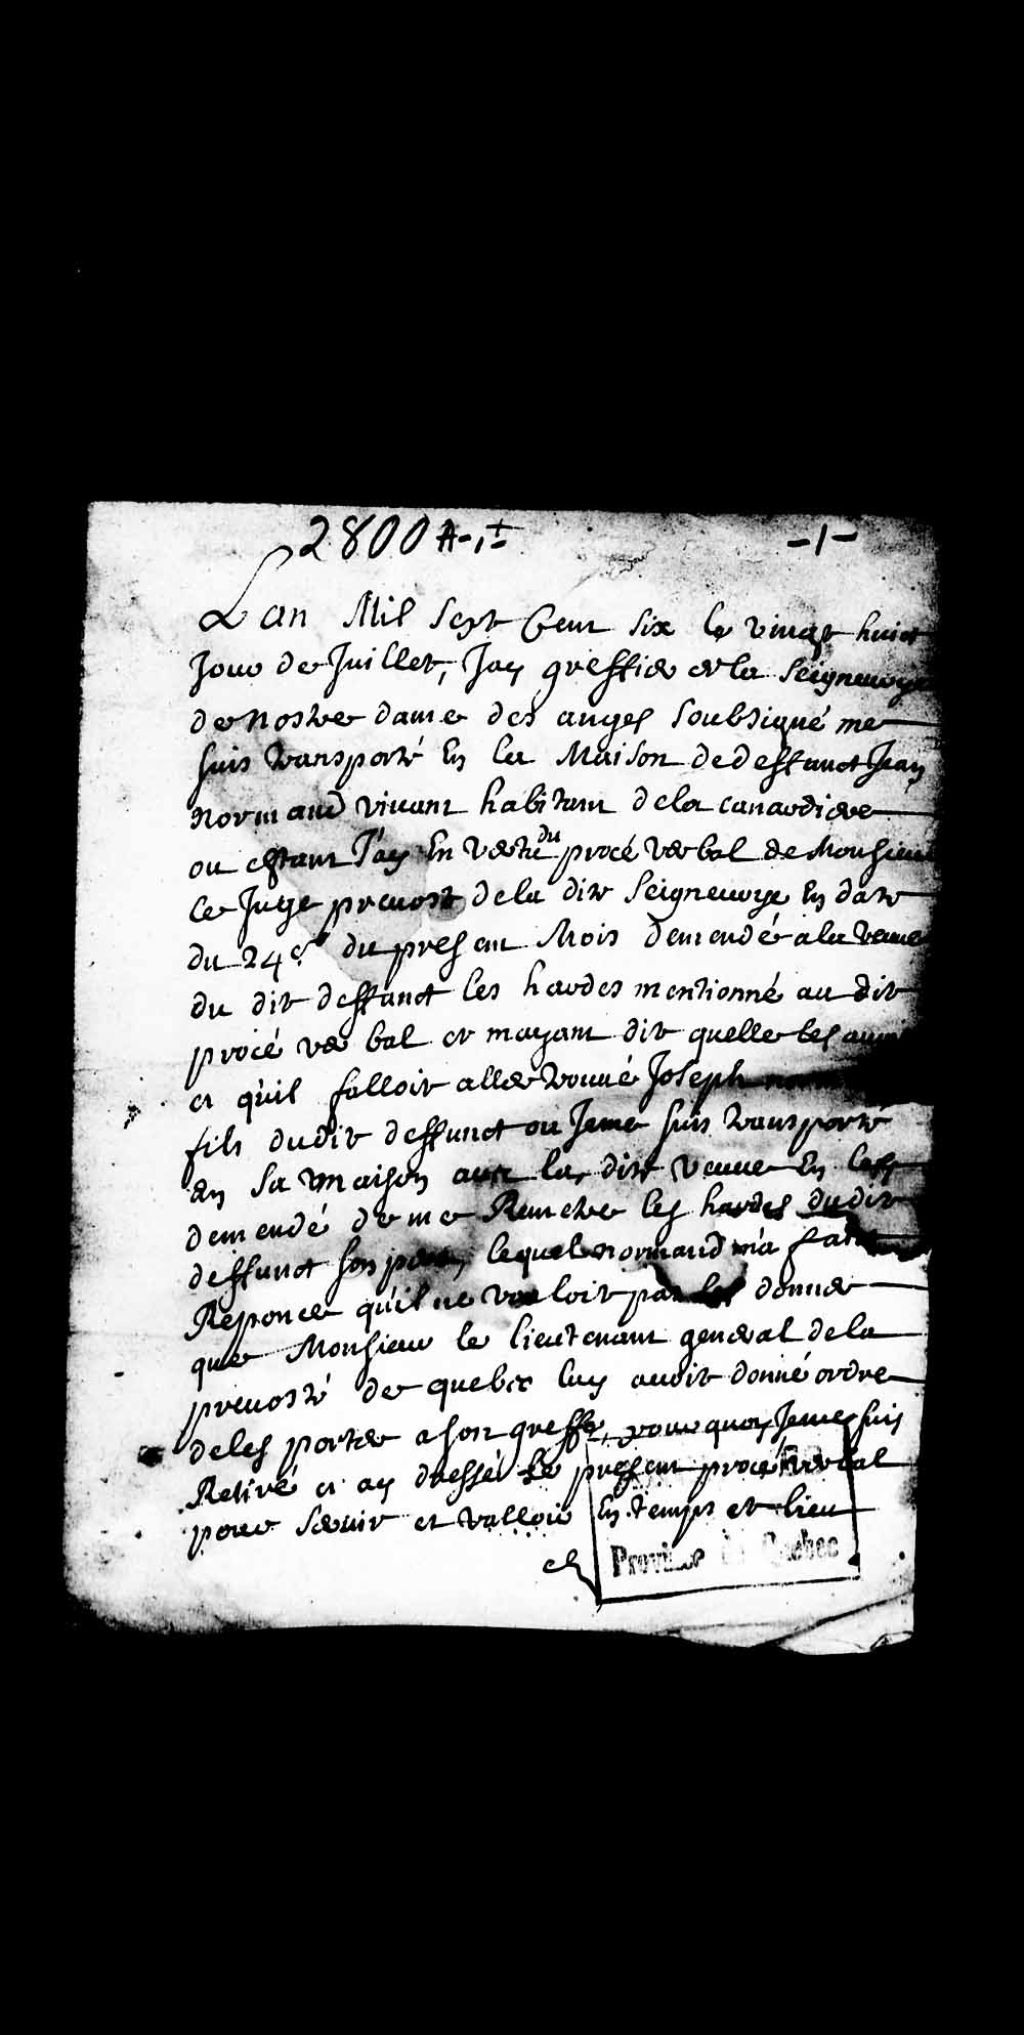 2800 A-1± -1-
Lan Mil Sept Cent six le vingt huict
Jour de Juillet, Jay greffier de la Seigneurye
de Nostre dame des anges soubsigné me
suis transporté En la Maison de deffunct Jean
Normand vivant habitant de la canardiere
ou estant J'ay En vertu du procé verbal de Monsieur
le Juge prevost de la dite Seigneurye En datte
du 24e. du present Mois demendé a la veuve
du dit deffunct les hardes mentionné au dit
procé verbal et mayant dit quelle les
et quil falloit aller trouvé Joseph
fils dudit deffunct ou Jeme suis transporté
En sa maison avec la dite veuve En les
demendé de me Remetre les hardes dudit
deffunct son pere, lequel normand m'a fait
Reponce qu'il ne vouloit pas les donner
que Monsieur le lieutenant general de la
prevosté de quebec luy avoit donné ordre
deles porter a son greffe, pourquoy Jeme suis
Retiré et ay dressé le present procé verbal
pour servir et valloir En temps et lieu
Province de Quebec